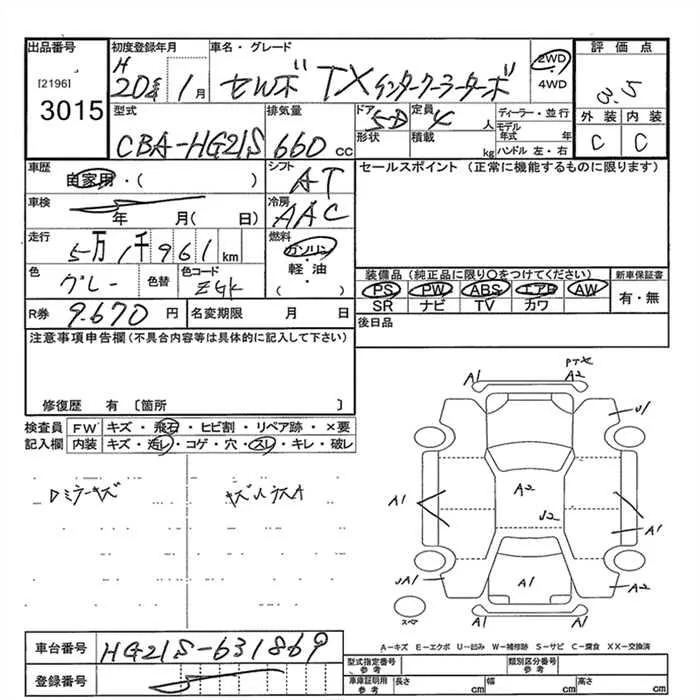 出品番号 初度登録年月 車名・グレード 評価点
[2196] 3015 H 20年 1月 セルボ TXインタークーラーターボ 2WD ・ 4WD 3.5
型式 排気量 ドア 形状 定員 積載 ディーラー・並行 外装 内装
CBA-HG21S 660cc 5-D 4人 kg モデル年式 年 ハンドル 左・右 C C
車歴 自家用・( ) シフト AT セールスポイント (正常に機能するものに限ります)
車検 年 月( 日) 冷房 AAC
走行 5万1千961km 燃料 ガソリン・軽油・( )
色 グレー 色替 色コード ZGK 装備品(純正品に限り○をつけてください) 新車保証書
PS PW ABS エアB AW 有・無
SR ナビ TV カワ
R券 9.670円 名変期限 月 日 後日品
注意事項申告欄(不具合内容等は具体的に記入して下さい)
修復歴 有 〔箇所 〕
検査員記入欄 FW キズ・飛石・ヒビ割・リペア跡・×要
内装 キズ・汚レ・コゲ・穴・スレ・キレ・破レ
A1 A2 U1
A1 A2 U2 A1
A1 A2
A1 A1
スペア
A-キズ E-エクボ U-凹み W-補修跡 S-サビ C-腐食 XX-交換済
車台番号 HG21S-631869
登録番号
型式指定番号 参考 類別区分番号 参考
車庫証明用 参考 長さ cm 幅 cm 高さ cm